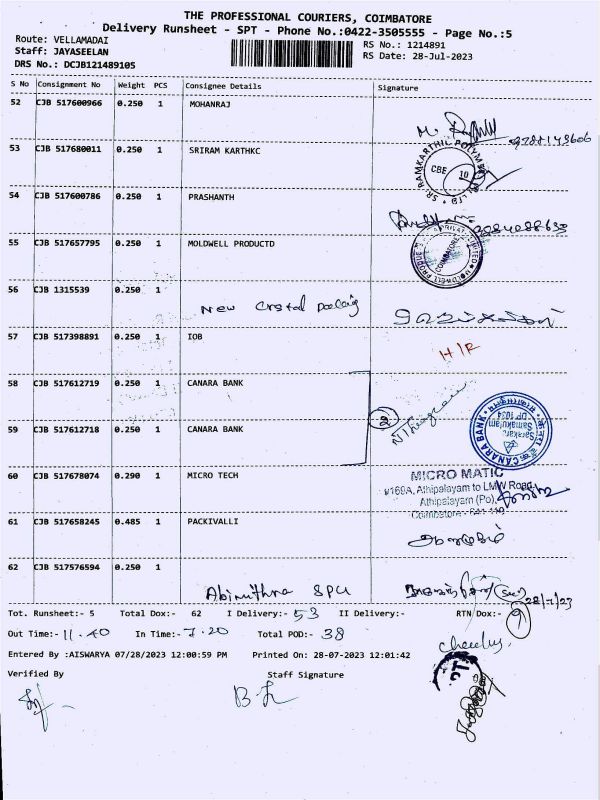 THE PROFESSIONAL COURIERS, COIMBATORE
Delivery Runsheet - SPT - Phone No.:0422-3505555 - Page No.:5
Route: VELLAMADAI
Staff: JAYASEELAN
DRS No.: DCJB121489105
RS No.: 1214891
RS Date: 28-Jul-2023
S No Consignment No Weight PCS Consignee Details Signature
52 CJB 517600966 0.250 1 MOHANRAJ
53 CJB 517680011 0.250 1 SRIRAM KARTHKC
CBE 10
54 CJB 517600786 0.250 1 PRASHANTH
55 CJB 517657795 0.250 1 MOLDWELL PRODUCTD
COIMBATORE
56 CJB 1315539 0.250 1 New
57 CJB 517398891 0.250 1 IOB H/R
58 CJB 517612719 0.250 1 CANARA BANK
59 CJB 517612718 0.250 1 CANARA BANK
2
CANARA BANK
DP 1034
60 CJB 517678074 0.290 1 MICRO TECH
MICRO MATIC
#169A, Athipalayam to LMW Road,
Athipalayam (Po),
61 CJB 517658245 0.485 1 PACKIVALLI
62 CJB 517576594 0.250 1
28/7/23
Tot. Runsheet:- 5 Total Dox:- 62 I Delivery:- 53 II Delivery:- RTN Dox:- 9
Out Time:- 11.40 In Time:- 7.20 Total POD:- 38
Entered By :AISWARYA 07/28/2023 12:00:59 PM Printed On: 28-07-2023 12:01:42
Verified By Staff Signature